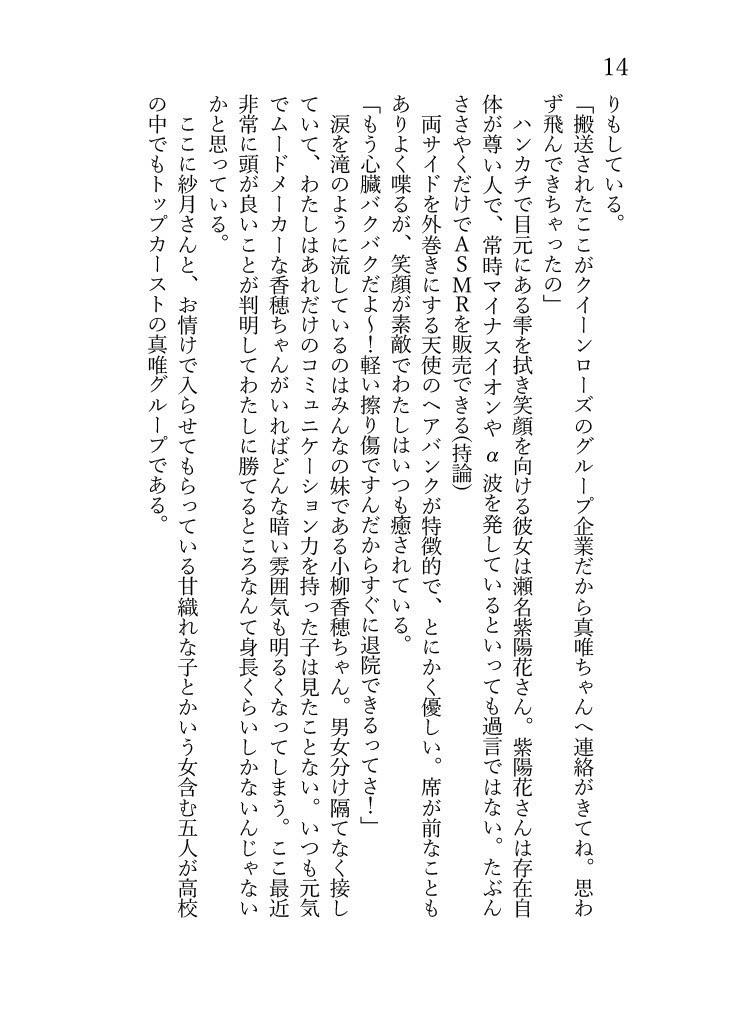 14
りもしている。
「搬送されたここがクイーンローズのグループ企業だから真唯ちゃんへ連絡がきてね。思わ
ず飛んできちゃったの」
　ハンカチで目元にある雫を拭き笑顔を向ける彼女は瀬名紫陽花さん。紫陽花さんは存在自
体が尊い人で、常時マイナスイオンやα波を発しているといっても過言ではない。たぶん
ささやくだけでＡＳＭＲを販売できる(持論)
　両サイドを外巻きにする天使のヘアバンクが特徴的で、とにかく優しい。席が前なことも
ありよく喋るが、笑顔が素敵でわたしはいつも癒されている。
「もう心臓バクバクだよ～！軽い擦り傷ですんだからすぐに退院できるってさ！」
　涙を滝のように流しているのはみんなの妹である小柳香穂ちゃん。男女分け隔てなく接し
ていて、わたしはあれだけのコミュニケーション力を持った子は見たことない。いつも元気
でムードメーカーな香穂ちゃんがいればどんな暗い雰囲気も明るくなってしまう。ここ最近
非常に頭が良いことが判明してわたしに勝てるところなんて身長くらいしかないんじゃない
かと思っている。
　ここに紗月さんと、お情けで入らせてもらっている甘織れな子とかいう女含む五人が高校
の中でもトップカーストの真唯グループである。